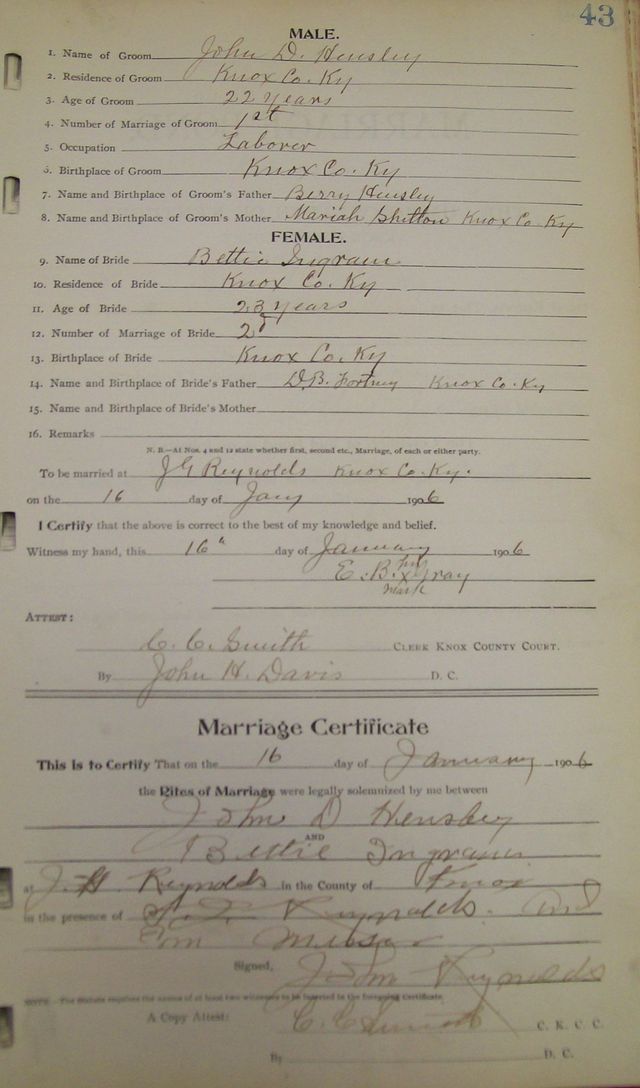 43
MALE.
1. Name of Groom John D. Hensley
2. Residence of Groom Knox Co. Ky
3. Age of Groom 22 years
4. Number of Marriage of Groom 1st
5. Occupation Laborer
6. Birthplace of Groom Knox Co. Ky
7. Name and Birthplace of Groom's Father Berry Hensley
8. Name and Birthplace of Groom's Mother Mariah Shelton Knox Co. Ky
FEMALE.
9. Name of Bride Bettie Ingram
10. Residence of Bride Knox Co. Ky
11. Age of Bride 23 years
12. Number of Marriage of Bride 2d
13. Birthplace of Bride Knox Co. Ky
14. Name and Birthplace of Bride's Father D.B. Fortney Knox Co. Ky
15. Name and Birthplace of Bride's Mother
16. Remarks
N. B.—At Nos. 4 and 12 state whether first, second etc., Marriage, of each or either party.
To be married at J G Reynolds Knox Co. Ky.
on the 16 day of Jany 1906
I Certify that the above is correct to the best of my knowledge and belief.
Witness my hand, this 16" day of January 1906
E. B. his x Gray
mark
ATTEST:
C. C. Smith CLERK KNOX COUNTY COURT.
By John H. Davis D. C.
Marriage Certificate
This is to Certify That on the 16 day of January 1906
the Rites of Marriage were legally solemnized by me between
John D Hensley
AND
Bettie Ingram
at J. H. Reynolds in the County of Knox
in the presence of Reynolds. And
Signed, John Reynolds
NOTE.—The Statute requires the names of at least two witnesses to be inserted in the foregoing Certificate.
A Copy Attest: C. C. Smith C. K. C. C.
By D. C.